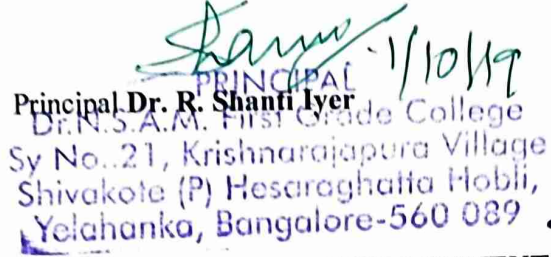 1/10/19
PRINCIPAL
Principal Dr. R. Shanti Iyer
Dr.N.S.A.M. First Grade College
Sy No..21, Krishnarajapura Village
Shivakote (P) Hesaraghatta Hobli,
Yelahanka, Bangalore-560 089